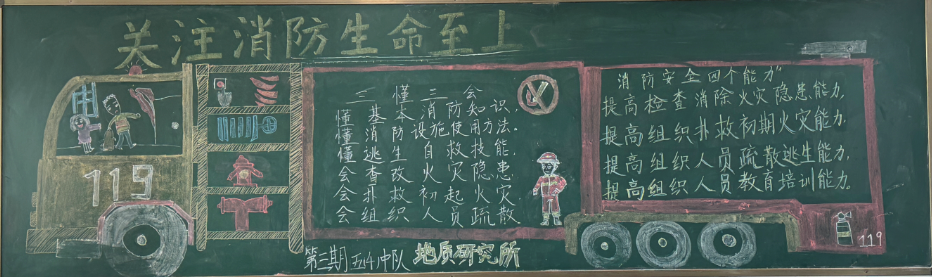 关注消防生命至上
119
三懂三会
懂基本消防知识.
懂消防设施使用方法.
懂逃生自救技能.
会查改火灾隐患
会扑救初起火灾
会组织人员疏散
消防安全四个能力"
提高检查消除火灾隐患能力.
提高组织扑救初期火灾能力.
提高组织人员疏散逃生能力.
提高组织人员教育培训能力.
119
第三期五(4)中队 地质研究所